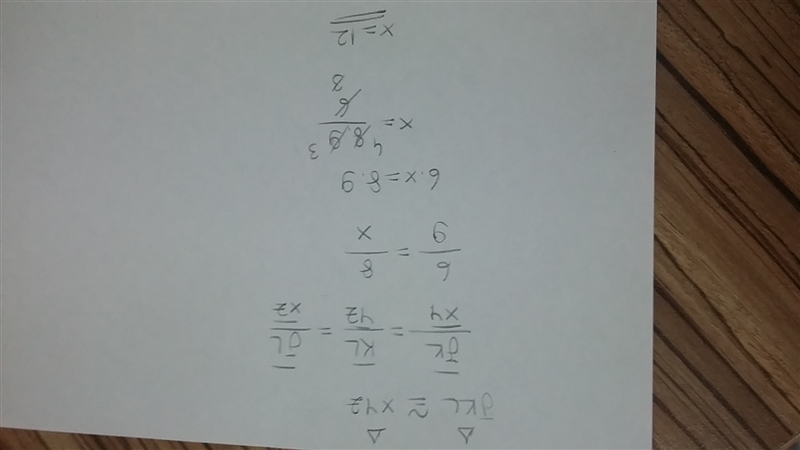 △ △
JKL ≅ XYZ
JK/XY = KL/YZ = JL/XZ
6/9 = 8/x
6·x=8·9
x= 4 8·9 3 / 6
x=12